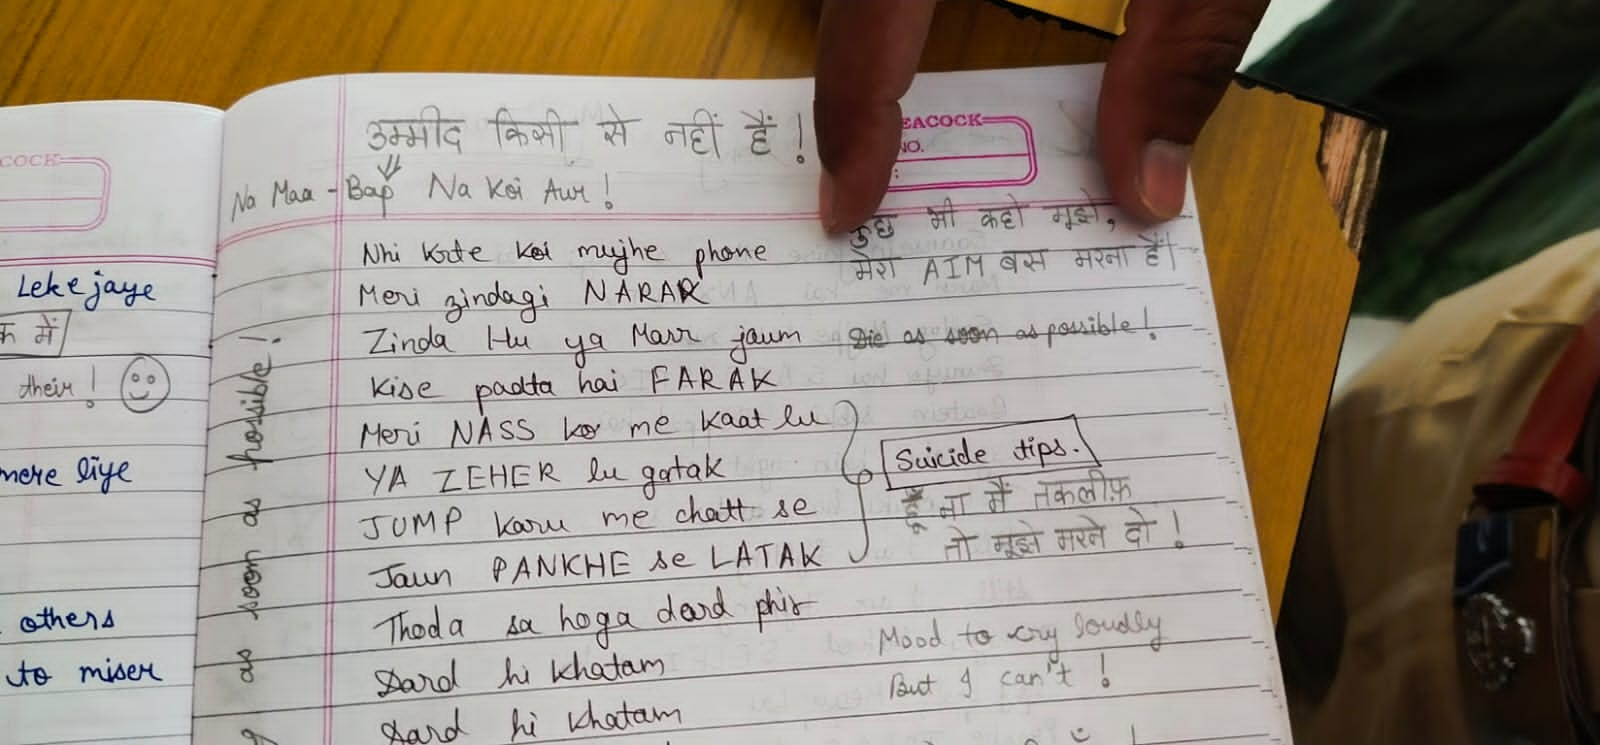 उम्मीद किसी से नहीं हैं !
Na Maa - Bap Na Koi Aur !
EACOCK
NO.
कुछ भी कहो मूझे,
मेरा AIM बस मरना हैं।
Nhi krte koi mujhe phone
Meri zindagi NARAK
Zinda Hu ya Marr jaum
Die as soon as possible !
Kise padta hai FARAK
Meri NASS ko me kaat lu
YA ZEHER lu gatak
JUMP karu me chatt se
Jaun PANKHE se LATAK
Suicide tips.
हूँ ना मैं तकलीफ़
तो मूझे मरने दो !
Thoda sa hoga dard phir
Dard hi khatam
Dard hi khatam
Mood to cry loudly
But I can't !
as soon as possible !
COCK
Leke jaye
में
their !
mere liye
others
to miser